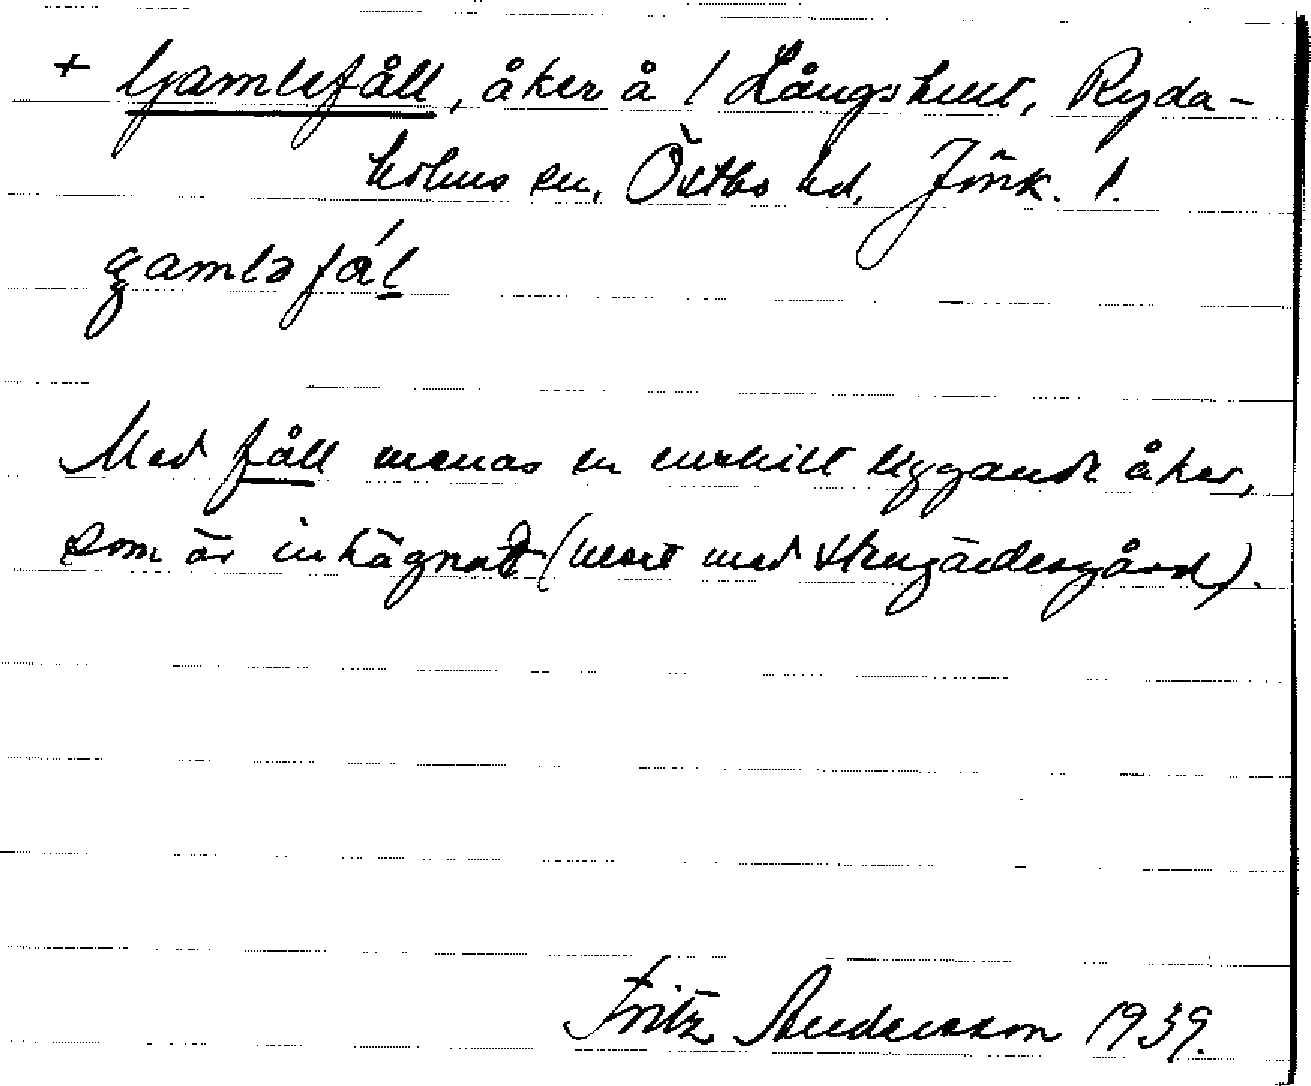 + Gamlefåll, åker å / Långshult, Ryda-
holms sn, Östbo hd, Jönk. l.
gamləfål
Med fåll menas en enskilt liggande åker,
som är inhägnat (mest med stengärdesgård).
Fritz Andersson 1939.